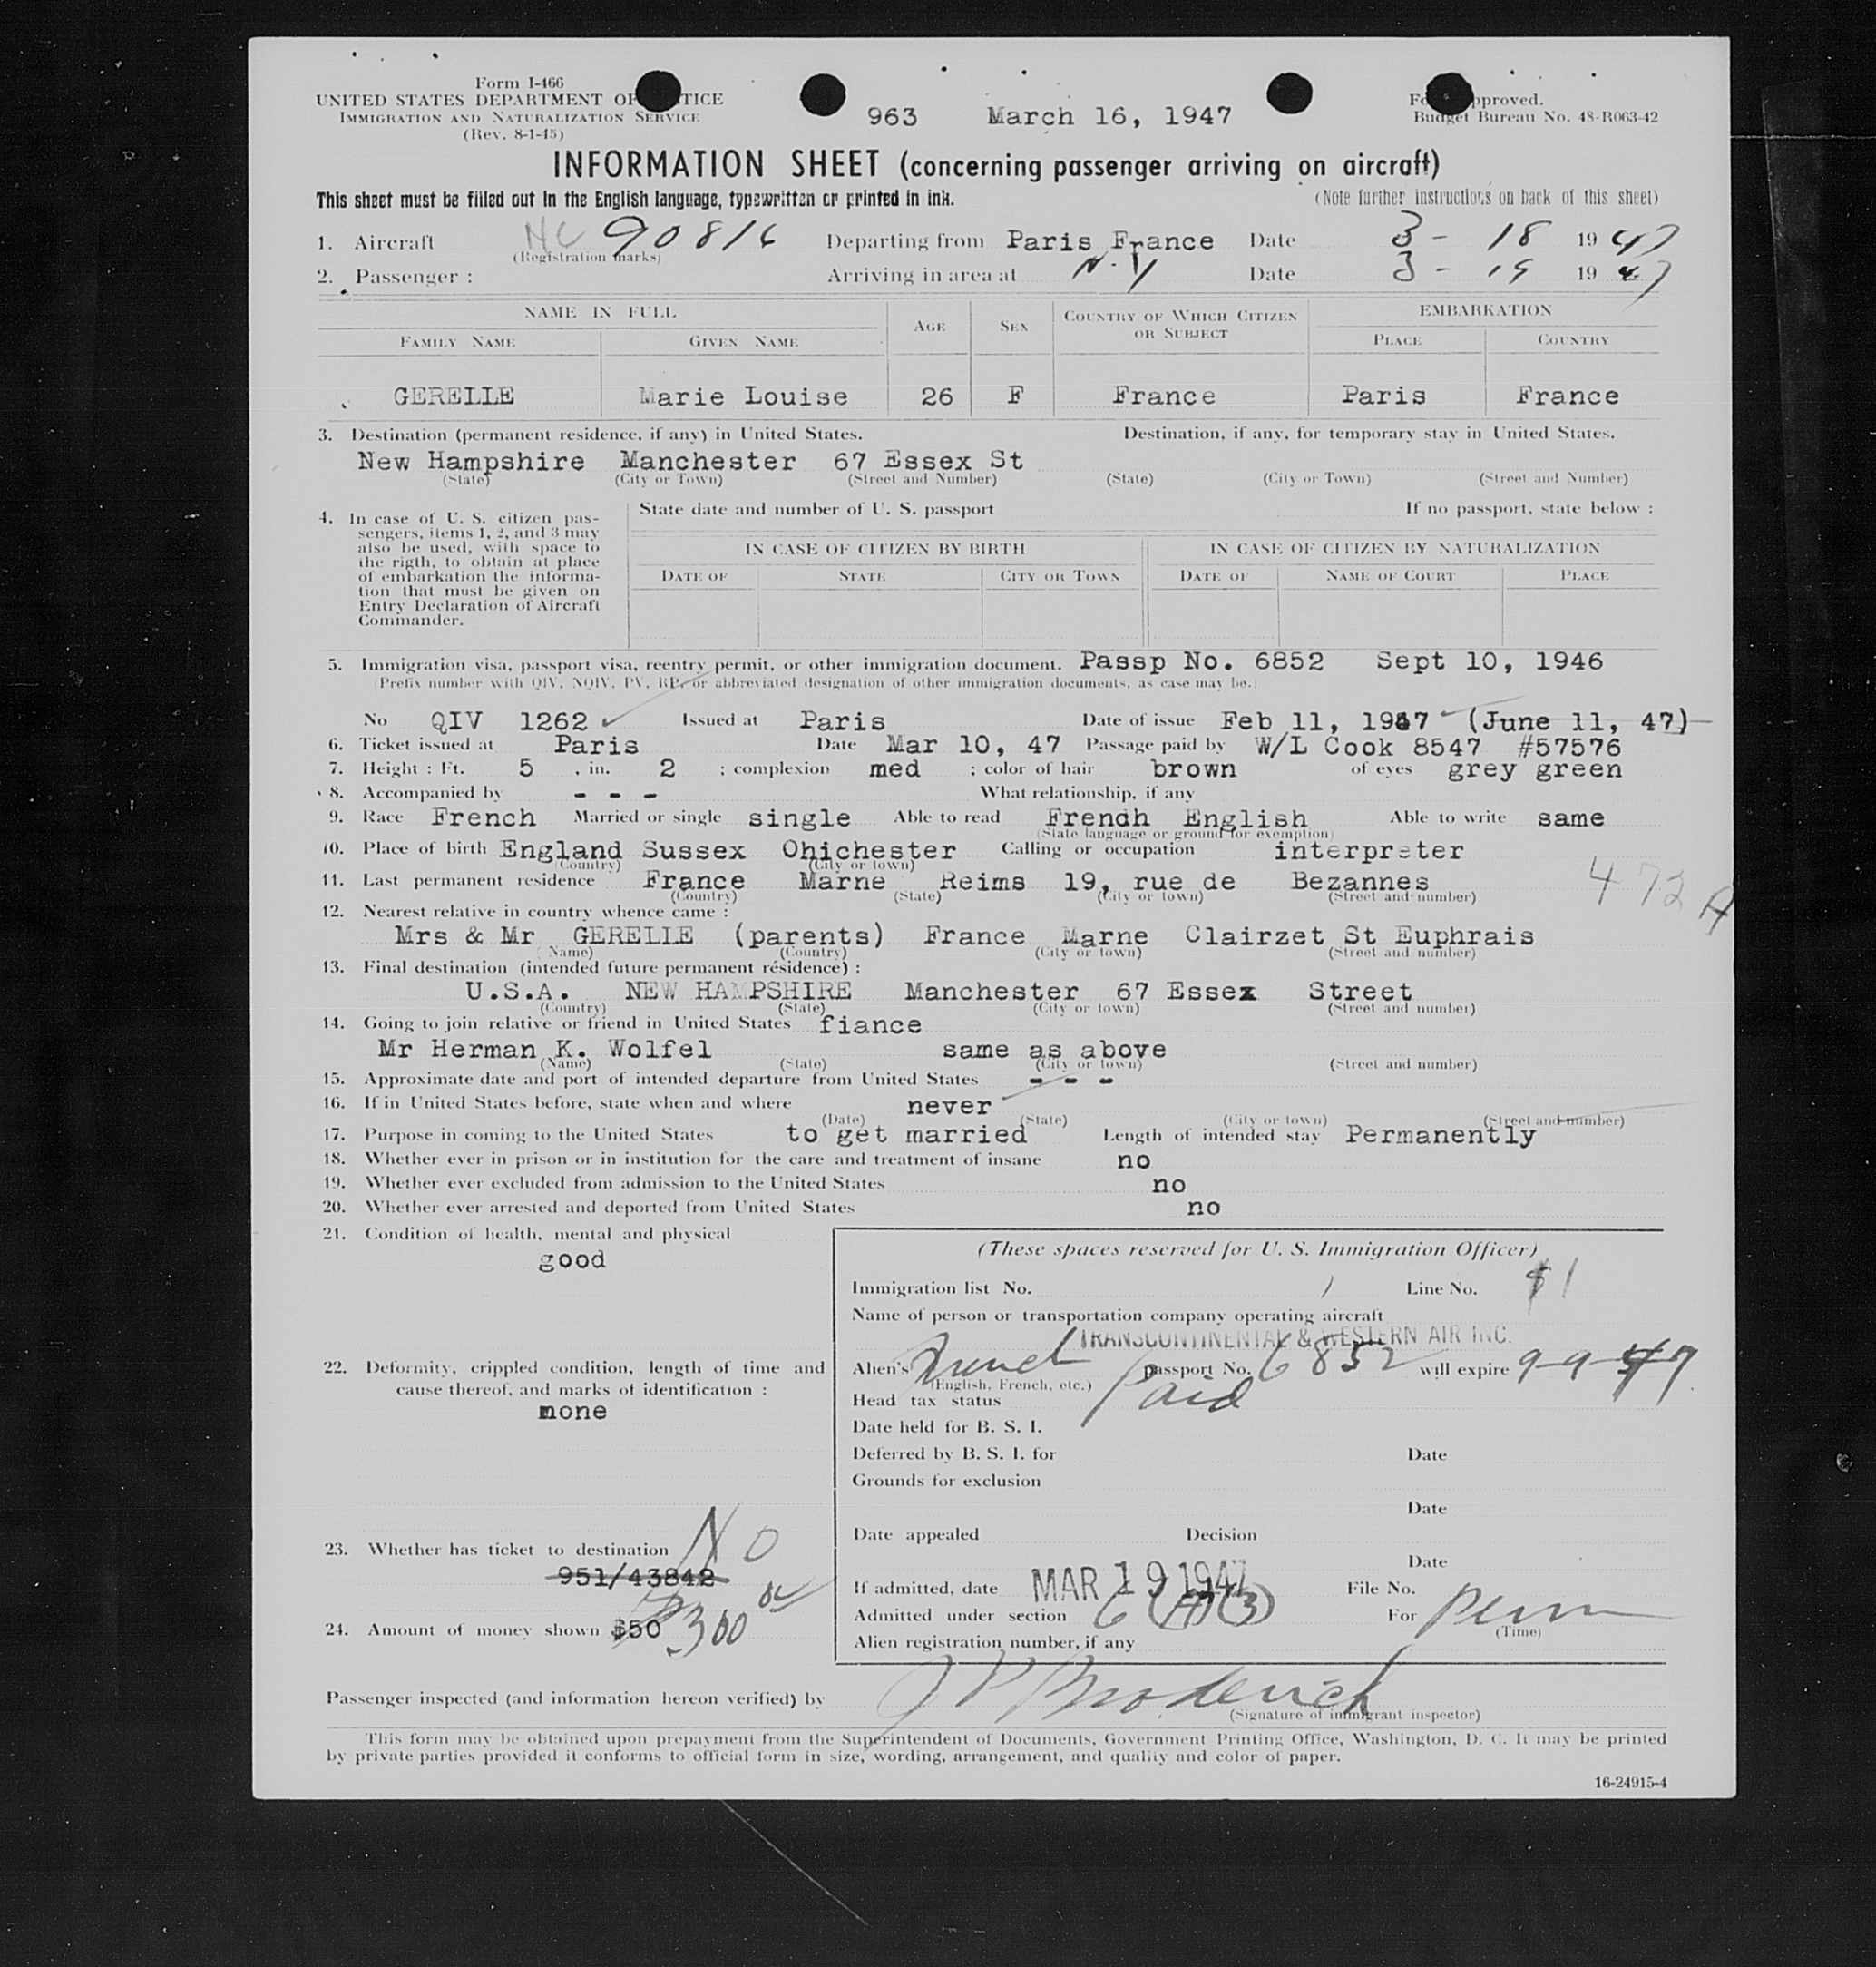 Form I-466
UNITED STATES DEPARTMENT OF JUSTICE
IMMIGRATION AND NATURALIZATION SERVICE
(Rev. 8-1-45)
963 March 16, 1947
Form approved.
Budget Bureau No. 43-R063-42
INFORMATION SHEET (concerning passenger arriving on aircraft)
This sheet must be filled out in the English language, typewritten or printed in ink. (Note further instructions on back of this sheet)
1. Aircraft NC 90816 Departing from Paris France Date 3 - 18 1947
(Registration marks)
2. Passenger : Arriving in area at N.Y Date 3 - 19 1947
NAME IN FULL AGE SEX COUNTRY OF WHICH CITIZEN OR SUBJECT EMBARKATION
FAMILY NAME GIVEN NAME PLACE COUNTRY
GERELLE Marie Louise 26 F France Paris France
3. Destination (permanent residence, if any) in United States. Destination, if any, for temporary stay in United States.
New Hampshire Manchester 67 Essex St
(State) (City or Town) (Street and Number) (State) (City or Town) (Street and Number)
4. In case of U. S. citizen pas-
sengers, items 1, 2, and 3 may
also be used, with space to
the rigth, to obtain at place
of embarkation the informa-
tion that must be given on
Entry Declaration of Aircraft
Commander.
State date and number of U. S. passport If no passport, state below :
IN CASE OF CITIZEN BY BIRTH IN CASE OF CITIZEN BY NATURALIZATION
DATE OF STATE CITY OR TOWN DATE OF NAME OF COURT PLACE
5. Immigration visa, passport visa, reentry permit, or other immigration document. Passp No. 6852 Sept 10, 1946
(Prefix number with QIV, NQIV, PV, RP, or abbreviated designation of other immigration documents, as case may be.)
No QIV 1262 Issued at Paris Date of issue Feb 11, 1947 (June 11, 47)
6. Ticket issued at Paris Date Mar 10, 47 Passage paid by W/L Cook 8547 #57576
7. Height : Ft. 5 , in. 2 ; complexion med ; color of hair brown of eyes grey green
8. Accompanied by - - - What relationship, if any
9. Race French Married or single single Able to read Frendh English Able to write same
(State language or ground for exemption)
10. Place of birth England Sussex Ohichester Calling or occupation interpreter
(Country) (City or town)
11. Last permanent residence France Marne Reims 19, rue de Bezannes
(Country) (State) (City or town) (Street and number)
472 A
12. Nearest relative in country whence came :
Mrs & Mr GERELLE (parents) France Marne Clairzet St Euphrais
(Name) (Country) (City or town) (Street and number)
13. Final destination (intended future permanent résidence) :
U.S.A. NEW HAMPSHIRE Manchester 67 Essex Street
(Country) (State) (City or town) (Street and number)
14. Going to join relative or friend in United States fiance
Mr Herman K. Wolfel same as above
(Name) (State) (City or town) (Street and number)
15. Approximate date and port of intended departure from United States - - -
16. If in United States before, state when and where never
(Date) (State) (City or town) (Street and number)
17. Purpose in coming to the United States to get married Length of intended stay Permanently
18. Whether ever in prison or in institution for the care and treatment of insane no
19. Whether ever excluded from admission to the United States no
20. Whether ever arrested and deported from United States no
21. Condition of health, mental and physical
good
22. Deformity, crippled condition, length of time and
cause thereof, and marks of identification :
none
23. Whether has ticket to destination NO
951/43842
24. Amount of money shown $50 $300
(These spaces reserved for U. S. Immigration Officer)
Immigration list No. 1 Line No. 1
Name of person or transportation company operating aircraft
TRANSCONTINENTAL & WESTERN AIR INC.
Alien's French passport No. 6852 will expire 9-9-47
(English, French, etc.)
Head tax status Paid
Date held for B. S. I.
Deferred by B. S. I. for Date
Grounds for exclusion
Date
Date appealed Decision
Date
If admitted, date MAR 19 1947 File No.
Admitted under section 6 (A)(3) For Perm
(Time)
Alien registration number, if any
Passenger inspected (and information hereon verified) by J P Broderick
(Signature of immigrant inspector)
This form may be obtained upon prepayment from the Superintendent of Documents, Government Printing Office, Washington, D. C. It may be printed
by private parties provided it conforms to official form in size, wording, arrangement, and quality and color of paper.
16-24915-4